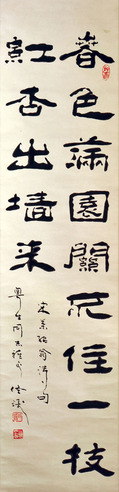 春色滿園關不住一枝
紅杏出墙来
宋葉紹翁詩句